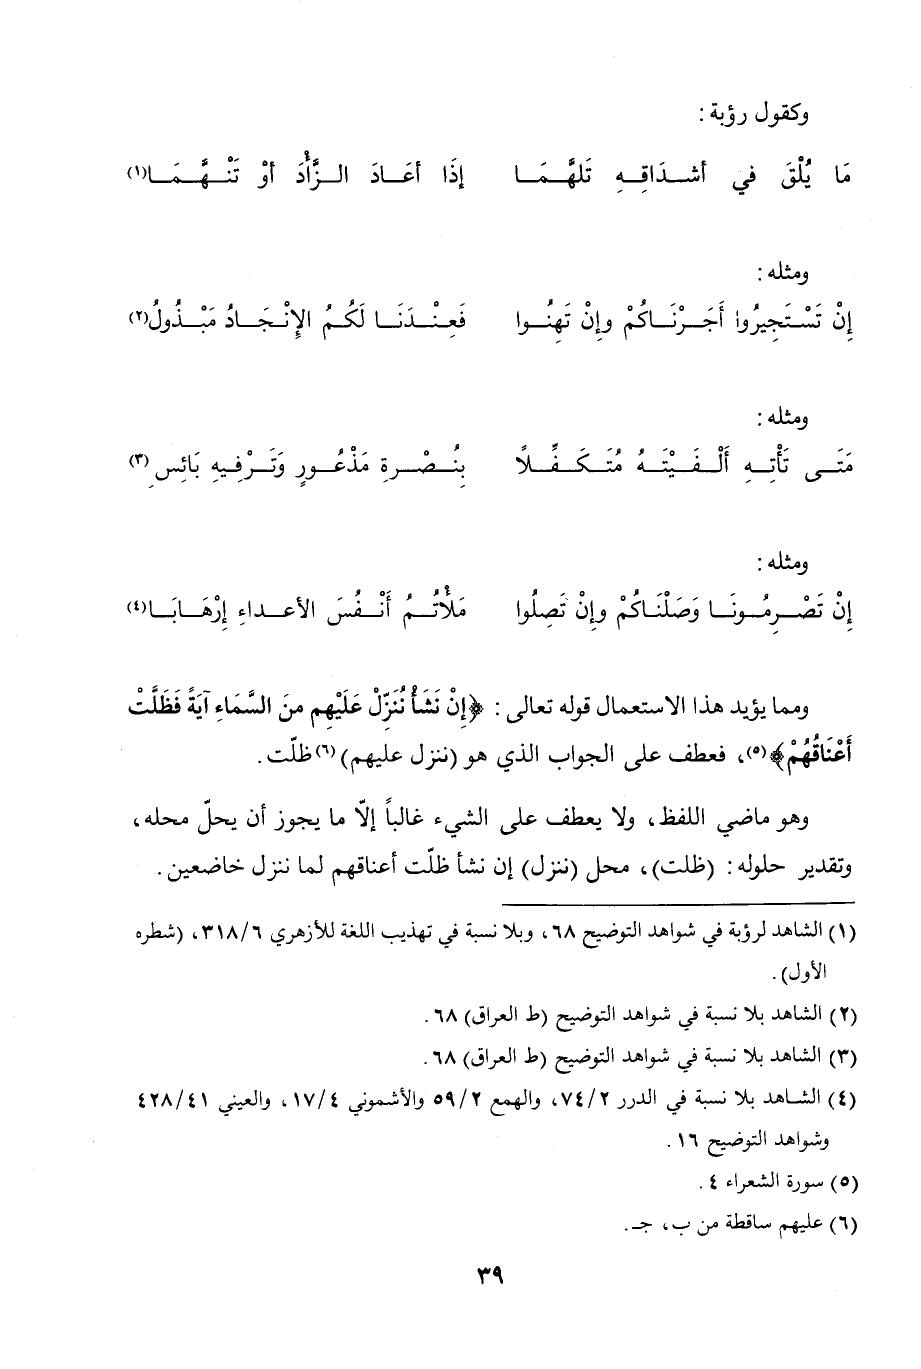 وكقول رؤبة :
مَا يُلْقَ في أشداقِهِ تَلهَّمَا إذَا أعَادَ الزَّأْدَ أوْ تَنْهَّمَا(١)
ومثله :
إنْ تَسْتَجِيرُوا أَجَرْنَاكُمْ وإنْ تَهِنُوا فَعِنْدَنَا لَكُمُ الإِنْجَادُ مَبْذُولُ(٢)
ومثله :
مَتَى تَأْتِهِ أَلْفَيْتَهُ مُتَكَفِّلاً بِنُصْرةِ مَذْعُورٍ وَتَرْفِيهِ بَائِسِ (٣)
ومثله :
إنْ تَصْرِمُونَا وَصَلْنَاكُمْ وإنْ تَصِلُوا مَلأْتُمُ أَنْفُسَ الأعداءِ إرْهَابَا(٤)
ومما يؤيد هذا الاستعمال قوله تعالى : ﴿إنْ نَشَأْ نُنَزِّلْ عَلَيْهِم منَ السَّمَاءِ آيَةً فَظَلَّتْ
أَعْنَاقُهُمْ﴾(٥)، فعطف على الجواب الذي هو (ننزل عليهم)(٦) ظلّت.
وهو ماضي اللفظ، ولا يعطف على الشيء غالباً إلّا ما يجوز أن يحلّ محله،
وتقدير حلوله: (ظلت)، محل (ننزل) إن نشأ ظلّت أعناقهم لما ننزل خاضعين.
(١) الشاهد لرؤبة في شواهد التوضيح ٦٨، وبلا نسبة في تهذيب اللغة للأزهري ٣١٨/٦، (شطره
الأول).
(٢) الشاهد بلا نسبة في شواهد التوضيح (ط العراق) ٦٨.
(٣) الشاهد بلا نسبة في شواهد التوضيح (ط العراق) ٦٨.
(٤) الشاهد بلا نسبة في الدرر ٧٤/٢، والهمع ٥٩/٢ والأشموني ١٧/٤، والعيني ٤٢٨/٤١
وشواهد التوضيح ١٦.
(٥) سورة الشعراء ٤.
(٦) عليهم ساقطة من ب، جـ.
٣٩